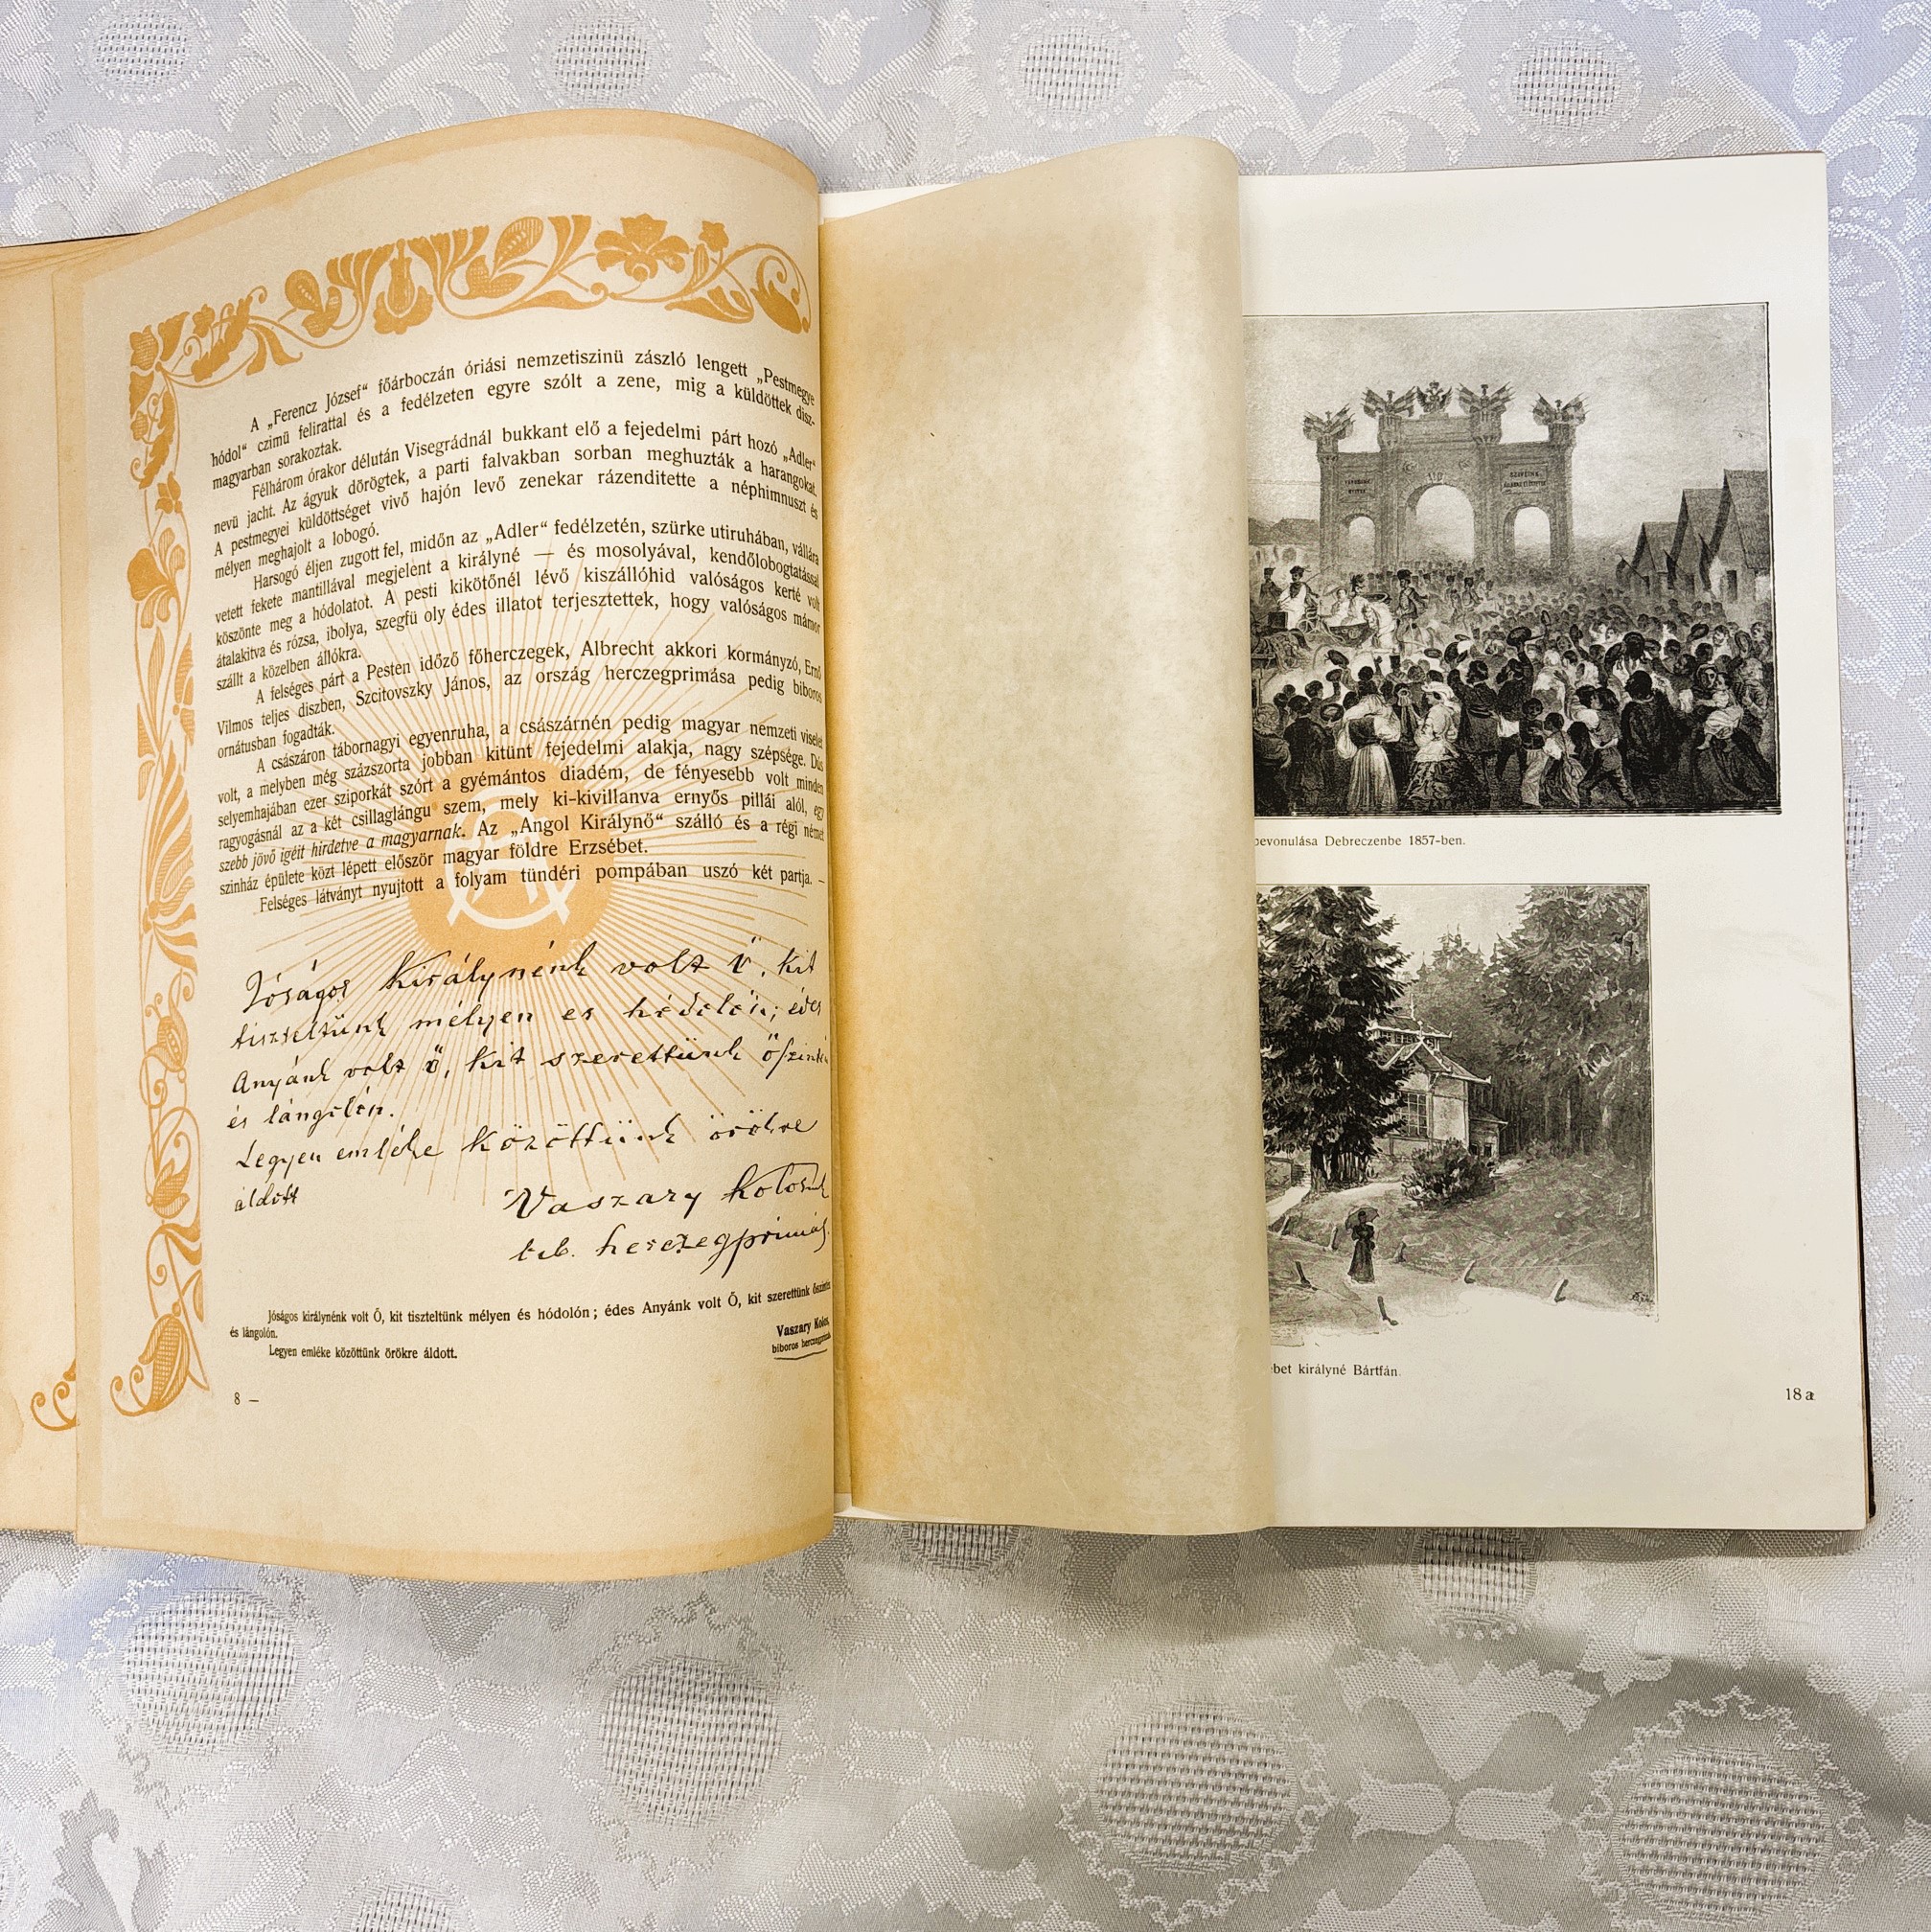 A „Ferencz József“ főárboczán óriási nemzetiszinü zászló lengett „Pestmegye
hódol“ czimü felirattal és a fedélzeten egyre szólt a zene, mig a küldöttek disz-
magyarban sorakoztak.
Félhárom órakor délután Visegrádnál bukkant elő a fejedelmi párt hozó „Adler“
nevü jacht. Az ágyuk dörögtek, a parti falvakban sorban meghuzták a harangokat.
A pestmegyei küldöttséget vivő hajón levő zenekar rázenditette a néphimnuszt és
mélyen meghajolt a lobogó.
Harsogó éljen zugott fel, midőn az „Adler“ fedélzetén, szürke utiruhában, vállára
vetett fekete mantillával megjelent a királyné — és mosolyával, kendőlobogtatással
köszönte meg a hódolatot. A pesti kikötőnél lévő kiszállóhid valóságos kerté volt
átalakitva és rózsa, ibolya, szegfü oly édes illatot terjesztettek, hogy valóságos mámor
szállt a közelben állókra.
A felséges párt a Pesten időző főherczegek, Albrecht akkori kormányzó, Ernő
Vilmos teljes diszben, Szcitovszky János, az ország herczegprimása pedig biboros
ornátusban fogadták.
A császáron tábornagyi egyenruha, a császárnén pedig magyar nemzeti viselet
volt, a melyben még százszorta jobban kitünt fejedelmi alakja, nagy szépsége. Dús
selyemhajában ezer sziporkát szórt a gyémántos diadém, de fényesebb volt minden
ragyogásnál az a két csillaglángu szem, mely ki-kivillanva ernyős pillái alól, egy
szebb jövő igéit hirdetve a magyarnak. Az „Angol Királynő“ szálló és a régi német
szinház épülete közt lépett először magyar földre Erzsébet.
Felséges látványt nyujtott a folyam tündéri pompában uszó két partja. –
Jóságos Királynénk volt ő, kit
tiszteltünk mélyen és hódolón; édes
Anyánk volt ő, kit szerettünk őszintén
és lángolón.
Legyen emléke közöttünk örökre
áldott
Vaszary Kolos
bib. herczegprimás.
Jóságos királynénk volt Ő, kit tiszteltünk mélyen és hódolón; édes Anyánk volt Ő, kit szerettünk őszintén
és lángolón.
Legyen emléke közöttünk örökre áldott.
Vaszary Kolos,
biboros herczegprimás.
8 —
bevonulása Debreczenbe 1857-ben.
ébet királyné Bártfán.
18 a